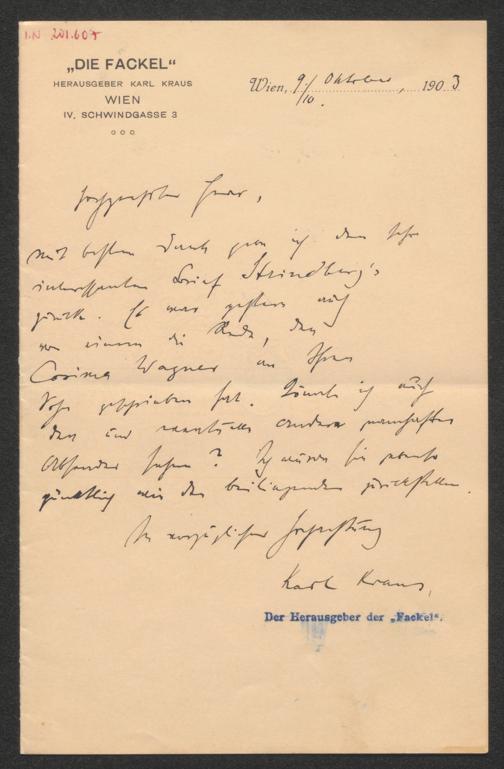 I.N 201.607
„DIE FACKEL“
HERAUSGEBER KARL KRAUS
WIEN
IV, SCHWINDGASSE 3
Wien, 9./10. Oktober, 1903
Hochgeehrter Herr,
mit bestem Dank gebe ich den sehr
interessanten Brief Strindberg's
zurück. Es war gestern auch
von einem die Rede, den
Cosima Wagner an Ihren
Sohn geschrieben hat. Könnte ich auch
den und eventuell andere namhafter
Absender sehen? Ich würde sie
pünktlich wie den beiliegenden zurückstellen.
In vorzüglicher Hochachtung
Karl Kraus,
Der Herausgeber der „Fackel“.